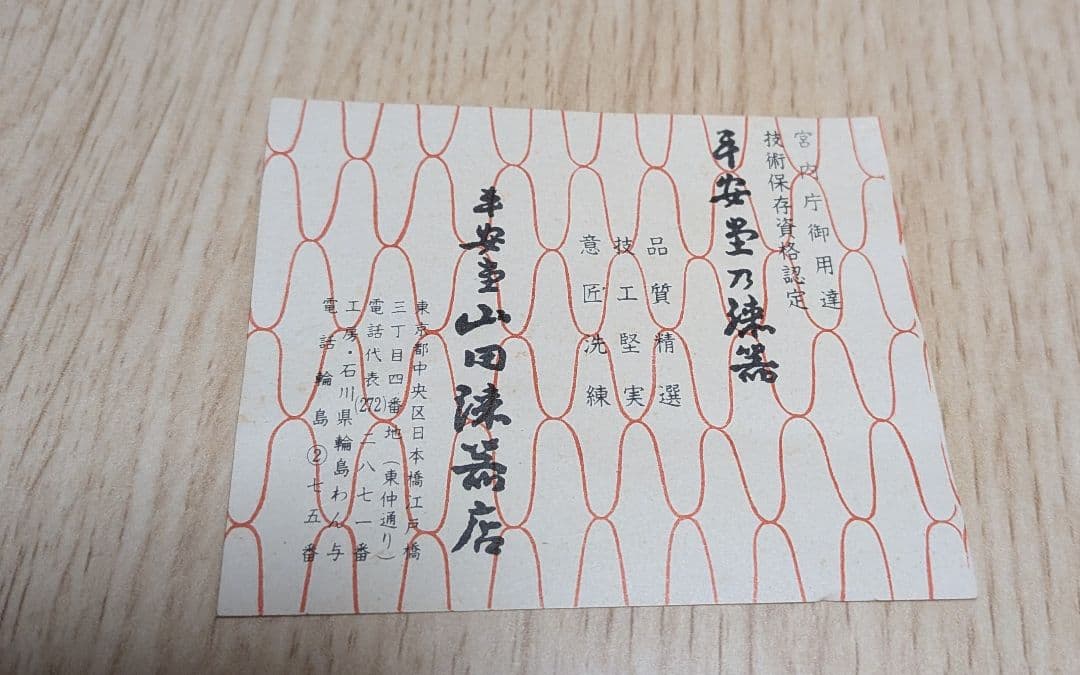 宮内庁御用達
技術保存資格認定
平安堂乃漆器
品質精選
技工堅実
意匠洗練
平安堂山田漆器店
東京都中央区日本橋江戸橋
三丁目四番地(東仲通り)
電話代表(272)二八七一番
工房・石川県輪島わん与
電話輪島②七五番